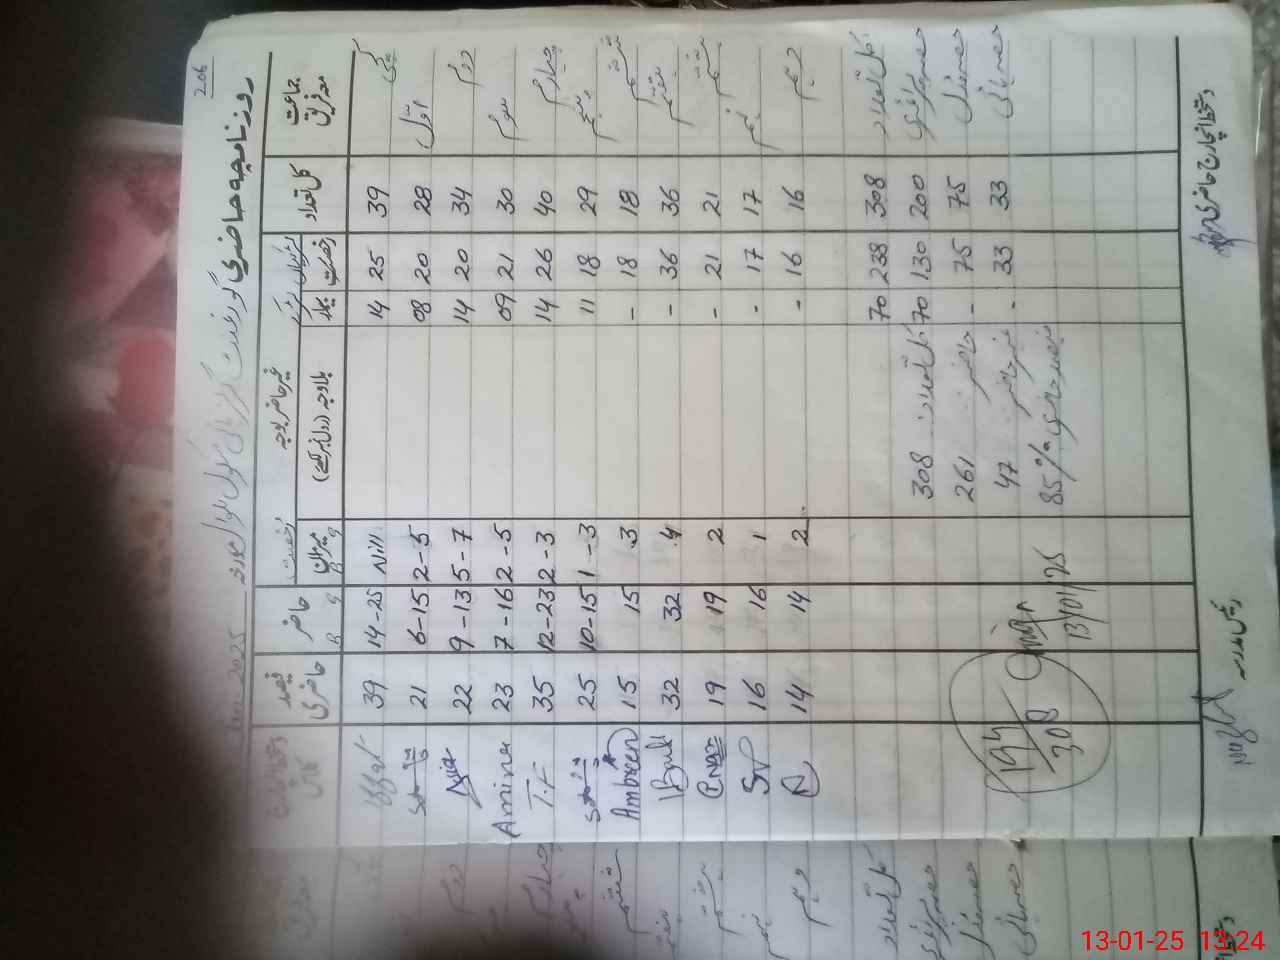 206
روزنامچہ حاضری گورنمنٹ گرلز ہائی سکول
2025
جماعت کل تعداد رخصت بلاوجہ حاضر B g فیصد حاضری
39 25 14 Nill 14-25 39
اول 28 20 08 2-5 6-15 21
دوم 34 20 14 5-7 9-13 22
سوم 30 21 09 2-5 7-16 23 Amina
چہارم 40 26 14 2-3 12-23 35 T.F
پنجم 29 18 11 1-3 10-15 25
ششم 18 18 - 3 15 15 Ambreen
ہفتم 36 36 - 4 32 32
ہشتم 21 21 - 2 19 19
نہم 17 17 - 1 16 16
دہم 16 16 - 2 14 14
کل تعداد 308 238 70
حصہ پرائمری 200 130 70 کل تعداد 308
حصہ مڈل 75 75 - حاضر 261
حصہ ہائی 33 33 - غیر حاضر 47
فیصد حاضری 85%
194/308
13/01/25
دستخط انچارج حاضری
رئیس مدرسہ
دوم
چہارم
ششم
ہفتم
ہشتم
نہم
دہم
کل تعداد
حصہ پرائمری
حصہ مڈل
حصہ ہائی
13-01-25 13:24